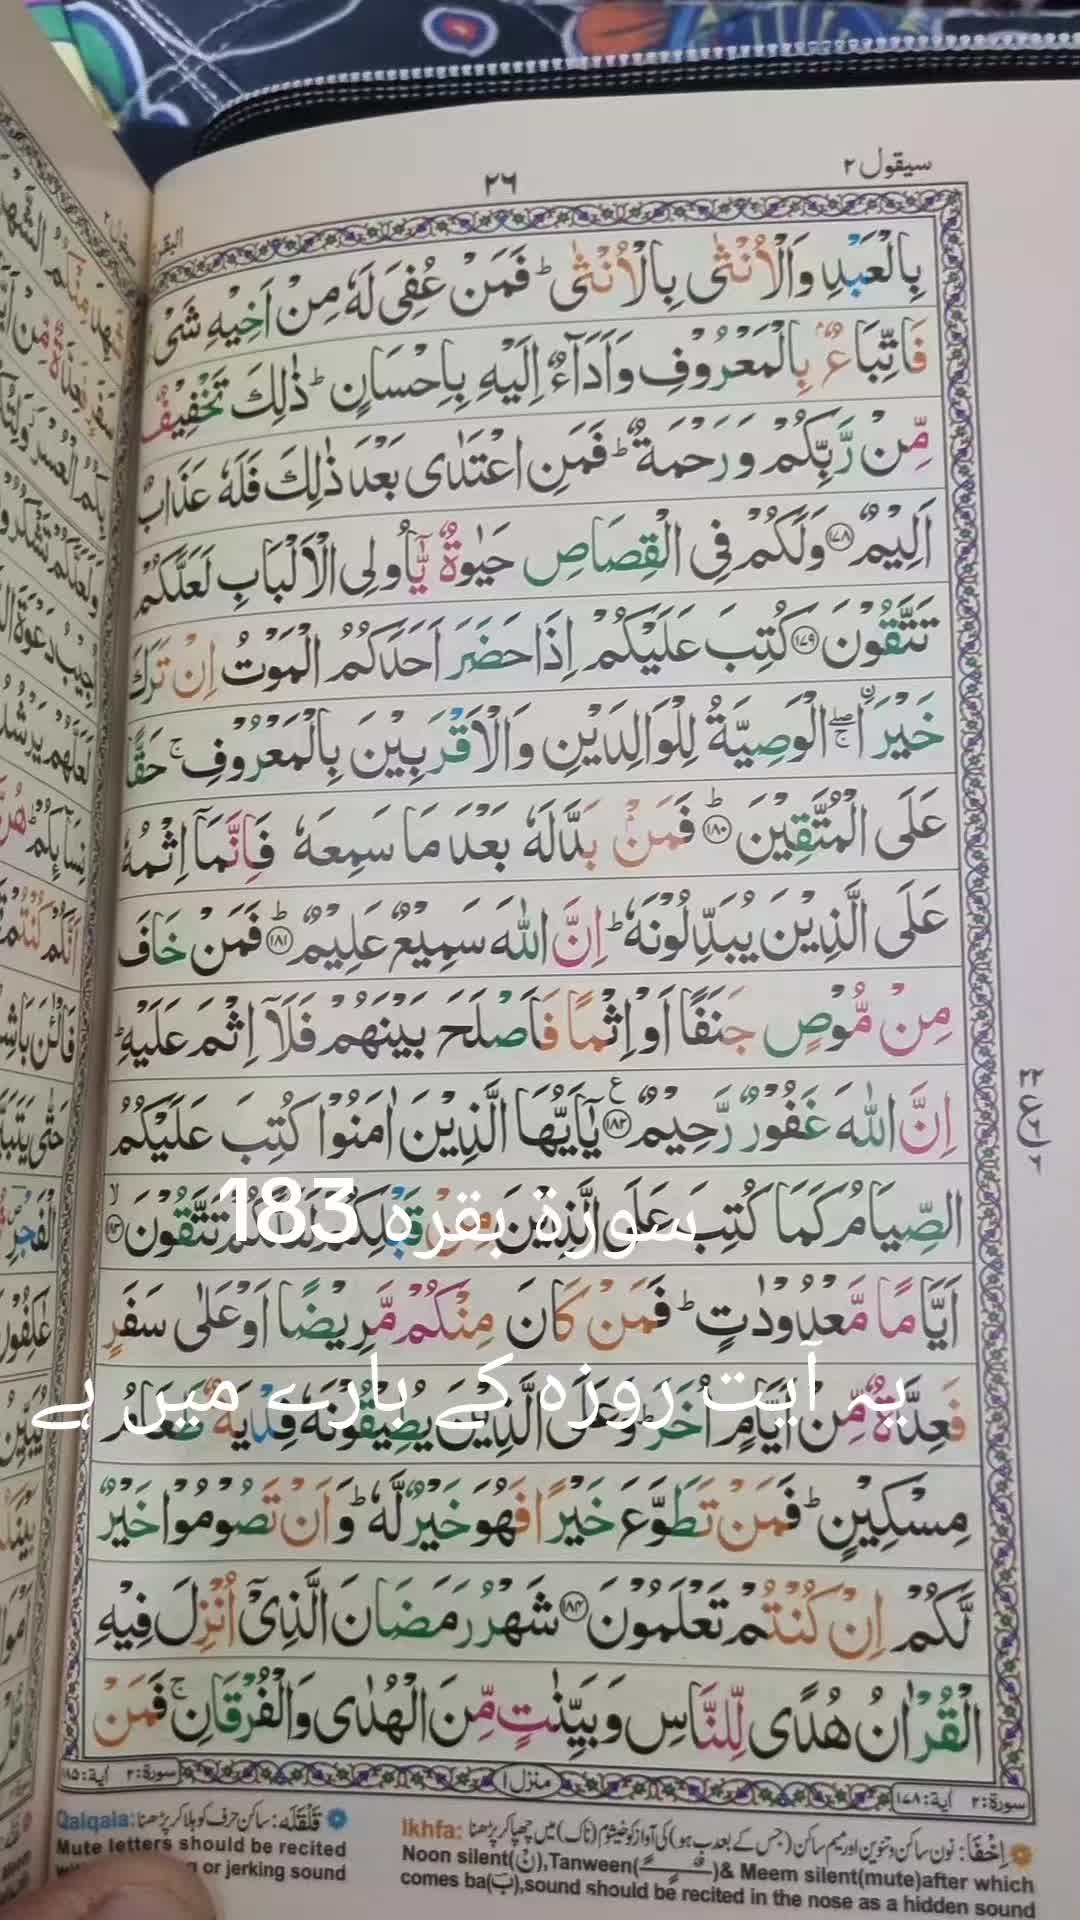 سیقول ٢
٢٦
البقر
بِالْعَبْدِ وَالْاُنْثٰى بِالْاُنْثٰى ؕ فَمَنْ عُفِىَ لَهٗ مِنْ اَخِيْهِ شَىْ
فَاتِّبَاعٌۢ بِالْمَعْرُوْفِ وَاَدَآءٌ اِلَيْهِ بِاِحْسَانٍ ؕ ذٰلِكَ تَخْفِيْفٌ
مِّنْ رَّبِّكُمْ وَرَحْمَةٌ ؕ فَمَنِ اعْتَدٰى بَعْدَ ذٰلِكَ فَلَهٗ عَذَابٌ
اَلِيْمٌ ۝١٧٨ وَلَكُمْ فِى الْقِصَاصِ حَيٰوةٌ يّٰٓاُولِى الْاَلْبَابِ لَعَلَّكُمْ
تَتَّقُوْنَ ۝١٧٩ كُتِبَ عَلَيْكُمْ اِذَا حَضَرَ اَحَدَكُمُ الْمَوْتُ اِنْ تَرَكَ
خَيْرَا ۖۚ اۨلْوَصِيَّةُ لِلْوَالِدَيْنِ وَالْاَقْرَبِيْنَ بِالْمَعْرُوْفِ ۚ حَقًّا
عَلَى الْمُتَّقِيْنَ ؕ۝١٨٠ فَمَنْۢ بَدَّلَهٗ بَعْدَ مَا سَمِعَهٗ فَاِنَّمَآ اِثْمُهٗ
عَلَى الَّذِيْنَ يُبَدِّلُوْنَهٗ ؕ اِنَّ اللّٰهَ سَمِيْعٌ عَلِيْمٌ ؕ۝١٨١ فَمَنْ خَافَ
مِنْ مُّوْصٍ جَنَفًا اَوْ اِثْمًا فَاَصْلَحَ بَيْنَهُمْ فَلَآ اِثْمَ عَلَيْهِ ؕ
اِنَّ اللّٰهَ غَفُوْرٌ رَّحِيْمٌ ۝١٨٢ ع يٰٓاَيُّهَا الَّذِيْنَ اٰمَنُوْا كُتِبَ عَلَيْكُمُ
٢٢
ع
٦
الصِّيَامُ كَمَا كُتِبَ عَلَى الَّذِيْنَ مِنْ قَبْلِكُمْ لَعَلَّكُمْ تَتَّقُوْنَ ۙ۝١٨٣
سورة بقرہ 183
اَيَّامًا مَّعْدُوْدٰتٍ ؕ فَمَنْ كَانَ مِنْكُمْ مَّرِيْضًا اَوْ عَلٰى سَفَرٍ
یہ آیت روزہ کے بارے میں ہے
فَعِدَّةٌ مِّنْ اَيَّامٍ اُخَرَ ؕ وَعَلَى الَّذِيْنَ يُطِيْقُوْنَهٗ فِدْيَةٌ طَعَامُ
مِسْكِيْنٍ ؕ فَمَنْ تَطَوَّعَ خَيْرًا فَهُوَ خَيْرٌ لَّهٗ ؕ وَاَنْ تَصُوْمُوْا خَيْرٌ
لَّكُمْ اِنْ كُنْتُمْ تَعْلَمُوْنَ ۝١٨٤ شَهْرُ رَمَضَانَ الَّذِىْٓ اُنْزِلَ فِيْهِ
الْقُرْاٰنُ هُدًى لِّلنَّاسِ وَبَيِّنٰتٍ مِّنَ الْهُدٰى وَالْفُرْقَانِ ۚ فَمَنْ
سورة: ٢ آية: ١٧٨
منزل ١
سورة: ٢ آية: ١٨٥
اِخْفَا: نون ساکن و تنوین اور میم ساکن (جس کے بعد ب ہو) کی آواز کو خیشوم (ناک) میں چھپا کر پڑھنا Ikhfa:
Noon silent(نْ),Tanween(ـًـٍـٌ)& Meem silent(mute)after which
comes ba(بَ),sound should be recited in the nose as a hidden sound
قَلْقَلَه: ساکن حرف کو ہلا کر پڑھنا Qalqala:
Mute letters should be recited
or jerking sound